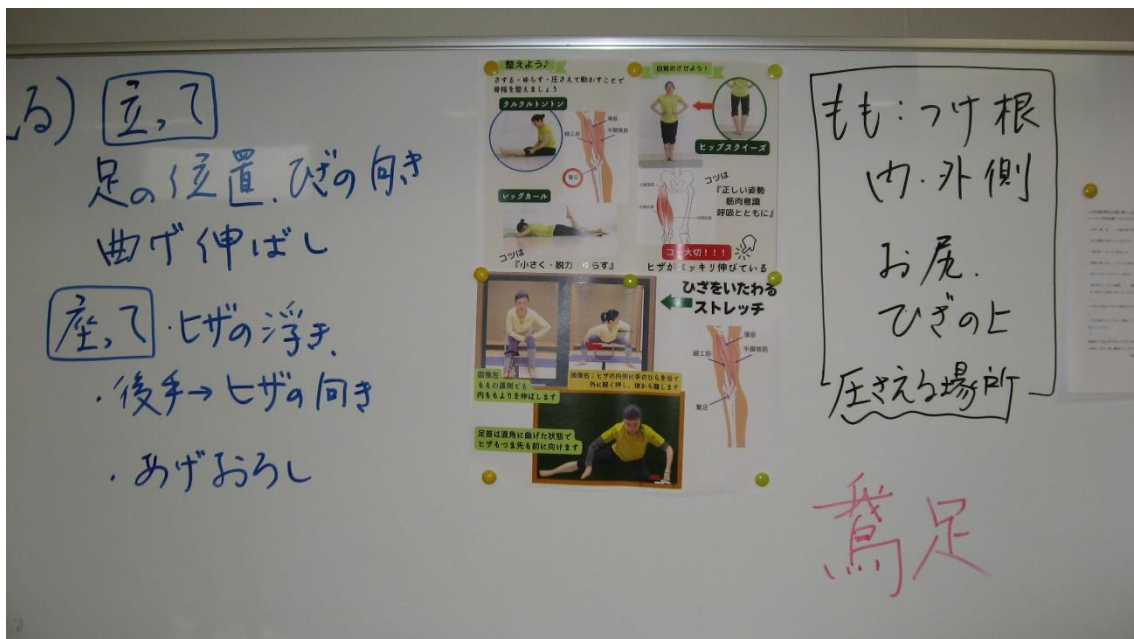 る)
立って
足の位置、ひざの向き
曲げ伸ばし
座って
・ヒザの浮き、
・後手→ヒザの向き
・あげおろし
整えよう♪
さする・ゆらす・圧さえて動かすことで
骨格を整えましょう
クルクルトントン
薄筋
縫工筋
半腱様筋
鵞足
レッグカール
コツは
『小さく・脱力
らす』
目覚めさせよう!
ヒップスクイーズ
コツは
『正しい姿勢
筋肉意識
呼吸とともに』
大切!!!
ヒザがスッキリ伸びている
ひざをいたわる
ストレッチ
画像左:
ももの裏側でも
内ももよりを伸ばします
画像右:ヒザの内側に手のひらを当て
外に軽く押し、体から離します
足首は直角に曲げた状態で
ヒザもつま先も前に向けます
薄筋
縫工筋
半腱様筋
鵞足
もも:つけ根
内・外側
お尻.
ひざの上
圧さえる場所
鵞足